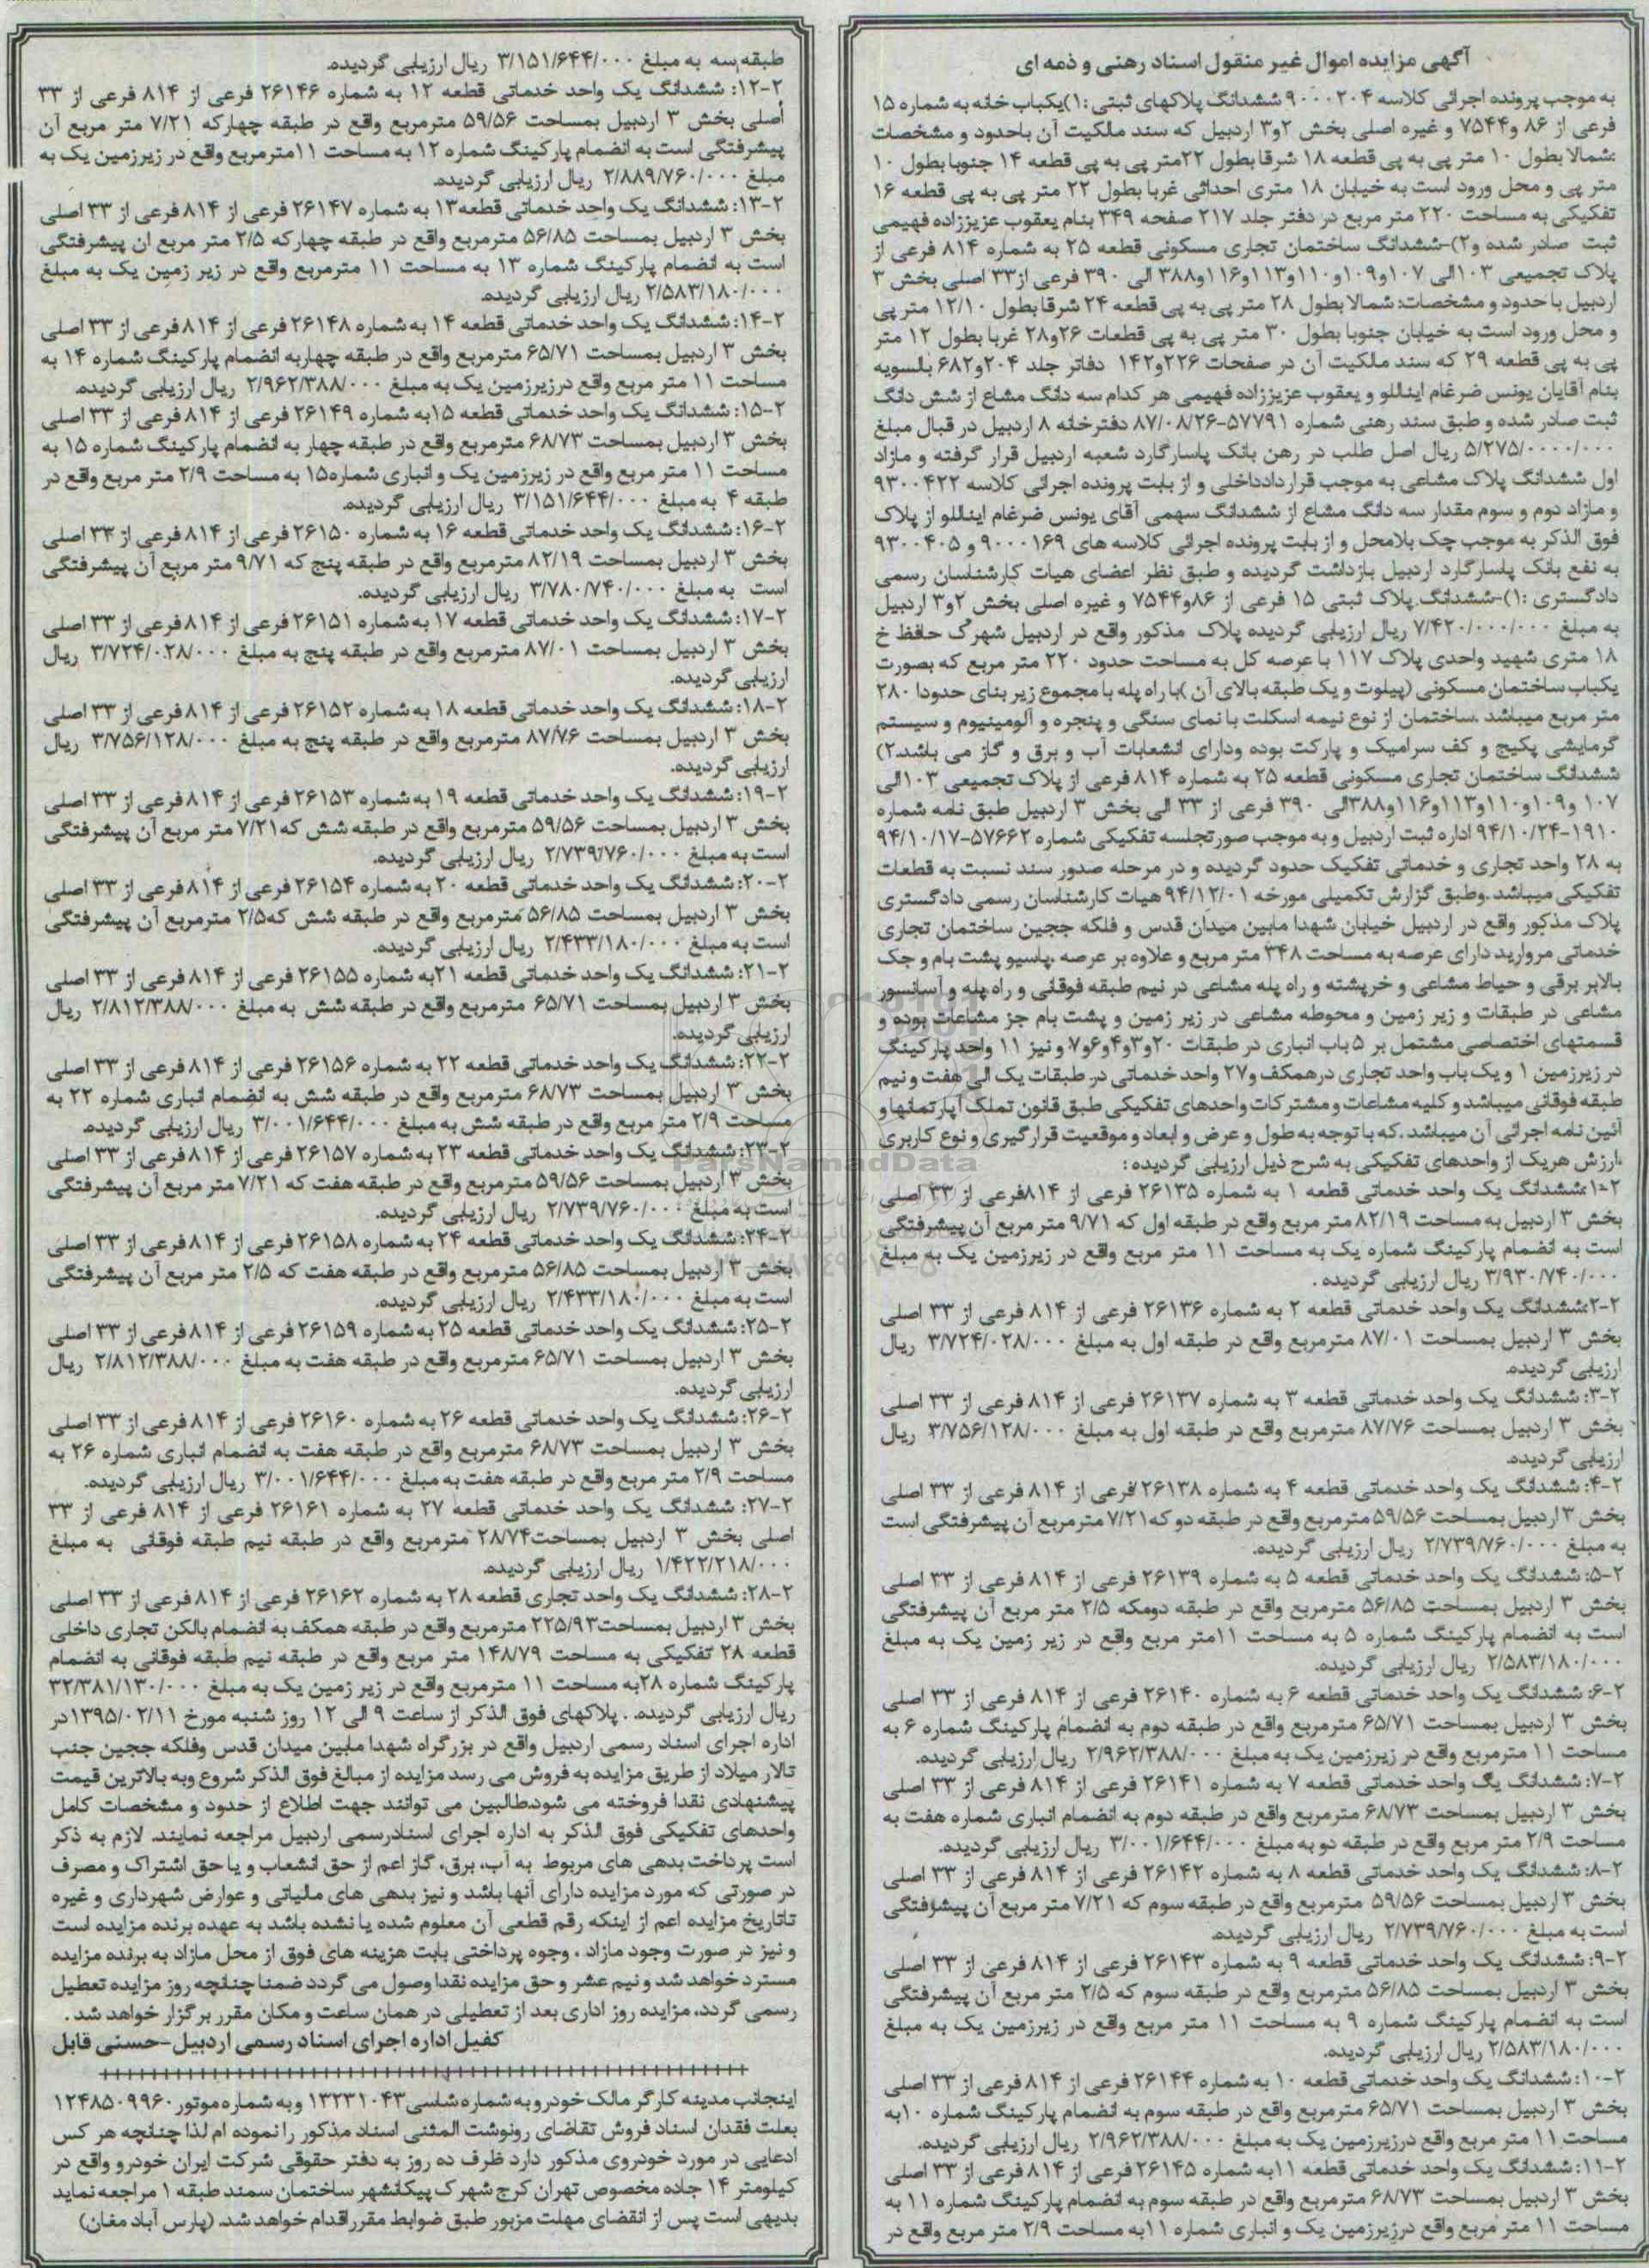 آگهی مزایده اموال غیر منقول اسناد رهنی و ذمه ای
به موجب پرونده اجرائی کلاسه ۹۰۰۰۲۰۴ ششدانگ پلاکهای ثبتی :۱)یکباب خانه به شماره ۱۵
فرعی از ۸۶ و۷۵۴۴ و غیره اصلی بخش ۲و۳ اردبیل که سند مالکیت آن باحدود و مشخصات
:شمالا بطول ۱۰ متر پی به پی قطعه ۱۸ شرقا بطول ۲۲متر پی به پی قطعه ۱۴ جنوبا بطول ۱۰
متر پی و محل ورود است به خیابان ۱۸ متری احداثی غربا بطول ۲۲ متر پی به پی قطعه ۱۶
تفکیکی به مساحت ۲۲۰ متر مربع در دفتر جلد ۲۱۷ صفحه ۳۴۹ بنام یعقوب عزیززاده فهیمی
ثبت صادر شده و۲)-ششدانگ ساختمان تجاری مسکونی قطعه ۲۵ به شماره ۸۱۴ فرعی از
پلاک تجمیعی ۱۰۳الی ۱۰۷و۱۰۹و۱۱۰و۱۱۳و۱۱۶و۳۸۸ الی ۳۹۰ فرعی از۳۳ اصلی بخش ۳
اردبیل با حدود و مشخصات: شمالا بطول ۲۸ متر پی به پی قطعه ۲۴ شرقا بطول ۱۲/۱۰ متر پی
و محل ورود است به خیابان جنوبا بطول ۳۰ متر پی به پی قطعات ۲۶و۲۸ غربا بطول ۱۲ متر
پی به پی قطعه ۲۹ که سند مالکیت آن در صفحات ۲۲۶و۱۴۲ دفاتر جلد ۲۰۴و۶۸۲ بالسویه
بنام آقایان یونس ضرغام اینالو و یعقوب عزیززاده فهیمی هر کدام سه دانگ مشاع از شش دانگ
ثبت صادر شده و طبق سند رهنی شماره ۵۷۷۹۱-۸۷/۰۸/۲۶ دفترخانه ۸ اردبیل در قبال مبلغ
۵/۲۷۵/۰۰۰۰/۰۰۰ ریال اصل طلب در رهن بانک پاسارگارد شعبه اردبیل قرار گرفته و مازاد
اول ششدانگ پلاک مشاعی به موجب قراردادداخلی و از بابت پرونده اجرائی کلاسه ۹۳۰۰۴۲۲
و مازاد دوم و سوم مقدار سه دانگ مشاع از ششدانگ سهمی آقای یونس ضرغام اینالو از پلاک
فوق الذکر به موجب چک بلامحل و از بابت پرونده اجرائی کلاسه های ۹۰۰۰۱۶۹ و ۹۳۰۰۴۰۵
به نفع بانک پاسارگارد اردبیل بازداشت گردیده و طبق نظر اعضای هیات کارشناسان رسمی
دادگستری :۱)-ششدانگ پلاک ثبتی ۱۵ فرعی از ۸۶و۷۵۴۴ و غیره اصلی بخش ۲و۳ اردبیل
به مبلغ ۷/۴۲۰/۰۰۰/۰۰۰ ریال ارزیابی گردیده پلاک مذکور واقع در اردبیل شهرک حافظ خ
۱۸ متری شهید واحدی پلاک ۱۱۷ با عرصه کل به مساحت حدود ۲۲۰ متر مربع که بصورت
یکباب ساختمان مسکونی (پیلوت و یک طبقه بالای آن )با راه پله با مجموع زیر بنای حدودا ۲۸۰
متر مربع میباشد .ساختمان از نوع نیمه اسکلت با نمای سنگی و پنجره و آلومینیوم و سیستم
گرمایشی پکیج و کف سرامیک و پارکت بوده ودارای انشعابات آب و برق و گاز می باشد.۲)
ششدانگ ساختمان تجاری مسکونی قطعه ۲۵ به شماره ۸۱۴ فرعی از پلاک تجمیعی ۱۰۳الی
۱۰۷ و۱۰۹و۱۱۰و۱۱۳و۱۱۶و۳۸۸الی ۳۹۰ فرعی از ۳۳ الی بخش ۳ اردبیل طبق نامه شماره
۱۹۱۰-۹۴/۱۰/۲۴ اداره ثبت اردبیل و به موجب صورتجلسه تفکیکی شماره ۵۷۶۶۲-۹۴/۱۰/۱۷
به ۲۸ واحد تجاری و خدماتی تفکیک حدود گردیده و در مرحله صدور سند نسبت به قطعات
تفکیکی میباشد .وطبق گزارش تکمیلی مورخه ۹۴/۱۲/۰۱ هیات کارشناسان رسمی دادگستری
پلاک مذکور واقع در اردبیل خیابان شهدا مابین میدان قدس و فلکه ججین ساختمان تجاری
خدماتی مروارید دارای عرصه به مساحت ۳۴۸ متر مربع و علاوه بر عرصه ،پاسیو پشت بام و جک
بالابر برقی و حیاط مشاعی و خرپشته و راه پله مشاعی در نیم طبقه فوقانی و راه پله و آسانسور
مشاعی در طبقات و زیر زمین و محوطه مشاعی در زیر زمین و پشت بام جز مشاعات بوده و
قسمتهای اختصاصی مشتمل بر ۵ باب انباری در طبقات ۲۰و۳و۴و۶و۷ و نیز ۱۱ واحد پارکینگ
در زیرزمین ۱ و یک باب واحد تجاری درهمکف و۲۷ واحد خدماتی در طبقات یک الی هفت و نیم
طبقه فوقانی میباشد و کلیه مشاعات و مشترکات واحدهای تفکیکی طبق قانون تملک آپارتمانها و
آئین نامه اجرائی آن میباشد .که با توجه به طول و عرض و ابعاد و موقعیت قرارگیری و نوع کاربری
،ارزش هریک از واحدهای تفکیکی به شرح ذیل ارزیابی گردیده :
۲-۱:ششدانگ یک واحد خدماتی قطعه ۱ به شماره ۲۶۱۳۵ فرعی از ۸۱۴فرعی از ۳۳ اصلی
بخش ۳ اردبیل به مساحت ۸۲/۱۹ متر مربع واقع در طبقه اول که ۹/۷۱ متر مربع آن پیشرفتگی
است به انضمام پارکینگ شماره یک به مساحت ۱۱ متر مربع واقع در زیرزمین یک به مبلغ
۳/۹۳۰/۷۴۰/۰۰۰ ریال ارزیابی گردیده .
۲-۲:ششدانگ یک واحد خدماتی قطعه ۲ به شماره ۲۶۱۳۶ فرعی از ۸۱۴ فرعی از ۳۳ اصلی
بخش ۳ اردبیل بمساحت ۸۷/۰۱ مترمربع واقع در طبقه اول به مبلغ ۳/۷۲۴/۰۲۸/۰۰۰ ریال
ارزیابی گردیده.
۲-۳: ششدانگ یک واحد خدماتی قطعه ۳ به شماره ۲۶۱۳۷ فرعی از ۸۱۴ فرعی از ۳۳ اصلی
بخش ۳ اردبیل بمساحت ۸۷/۷۶ مترمربع واقع در طبقه اول به مبلغ ۳/۷۵۶/۱۲۸/۰۰۰ ریال
ارزیابی گردیده.
۲-۴: ششدانگ یک واحد خدماتی قطعه ۴ به شماره ۲۶۱۳۸ فرعی از ۸۱۴ فرعی از ۳۳ اصلی
بخش ۳ اردبیل بمساحت ۵۹/۵۶ مترمربع واقع در طبقه دو که۷/۲۱ مترمربع آن پیشرفتگی است
به مبلغ ۲/۷۳۹/۷۶۰/۰۰۰ ریال ارزیابی گردیده.
۲-۵: ششدانگ یک واحد خدماتی قطعه ۵ به شماره ۲۶۱۳۹ فرعی از ۸۱۴ فرعی از ۳۳ اصلی
بخش ۳ اردبیل بمساحت ۵۶/۸۵ مترمربع واقع در طبقه دومکه ۲/۵ متر مربع آن پیشرفتگی
است به انضمام پارکینگ شماره ۵ به مساحت ۱۱متر مربع واقع در زیر زمین یک به مبلغ
۲/۵۸۳/۱۸۰/۰۰۰ ریال ارزیابی گردیده.
۲-۶: ششدانگ یک واحد خدماتی قطعه ۶ به شماره ۲۶۱۴۰ فرعی از ۸۱۴ فرعی از ۳۳ اصلی
بخش ۳ اردبیل بمساحت ۶۵/۷۱ مترمربع واقع در طبقه دوم به انضمام پارکینگ شماره ۶ به
مساحت ۱۱ مترمربع واقع در زیرزمین یک به مبلغ ۲/۹۶۲/۳۸۸/۰۰۰ ریال ارزیابی گردیده.
۲-۷: ششدانگ یک واحد خدماتی قطعه ۷ به شماره ۲۶۱۴۱ فرعی از ۸۱۴ فرعی از ۳۳ اصلی
بخش ۳ اردبیل بمساحت ۶۸/۷۳ مترمربع واقع در طبقه دوم به انضمام انباری شماره هفت به
مساحت ۲/۹ متر مربع واقع در طبقه دو به مبلغ ۳/۰۰۱/۶۴۴/۰۰۰ ریال ارزیابی گردیده.
۲-۸: ششدانگ یک واحد خدماتی قطعه ۸ به شماره ۲۶۱۴۲ فرعی از ۸۱۴ فرعی از ۳۳ اصلی
بخش ۳ اردبیل بمساحت ۵۹/۵۶ مترمربع واقع در طبقه سوم که ۷/۲۱ متر مربع آن پیشرفتگی
است به مبلغ ۲/۷۳۹/۷۶۰/۰۰۰ ریال ارزیابی گردیده.
۲-۹: ششدانگ یک واحد خدماتی قطعه ۹ به شماره ۲۶۱۴۳ فرعی از ۸۱۴ فرعی از ۳۳ اصلی
بخش ۳ اردبیل بمساحت ۵۶/۸۵ مترمربع واقع در طبقه سوم که ۲/۵ متر مربع آن پیشرفتگی
است به انضمام پارکینگ شماره ۹ به مساحت ۱۱ متر مربع واقع در زیرزمین یک به مبلغ
۲/۵۸۳/۱۸۰/۰۰۰ ریال ارزیابی گردیده.
۲-۱۰: ششدانگ یک واحد خدماتی قطعه ۱۰ به شماره ۲۶۱۴۴ فرعی از ۸۱۴ فرعی از ۳۳ اصلی
بخش ۳ اردبیل بمساحت ۶۵/۷۱ مترمربع واقع در طبقه سوم به انضمام پارکینگ شماره ۱۰به
مساحت ۱۱ متر مربع واقع درزیرزمین یک به مبلغ ۲/۹۶۲/۳۸۸/۰۰۰ ریال ارزیابی گردیده.
۲-۱۱: ششدانگ یک واحد خدماتی قطعه ۱۱به شماره ۲۶۱۴۵ فرعی از ۸۱۴ فرعی از ۳۳ اصلی
بخش ۳ اردبیل بمساحت ۶۸/۷۳ مترمربع واقع در طبقه سوم به انضمام پارکینگ شماره ۱۱ به
مساحت ۱۱ متر مربع واقع درزیرزمین یک و انباری شماره ۱۱به مساحت ۲/۹ متر مربع واقع در
طبقه سه به مبلغ ۳/۱۵۱/۶۴۴/۰۰۰ ریال ارزیابی گردیده.
۲-۱۲: ششدانگ یک واحد خدماتی قطعه ۱۲ به شماره ۲۶۱۴۶ فرعی از ۸۱۴ فرعی از ۳۳
اصلی بخش ۳ اردبیل بمساحت ۵۹/۵۶ مترمربع واقع در طبقه چهارکه ۷/۲۱ متر مربع آن
پیشرفتگی است به انضمام پارکینگ شماره ۱۲ به مساحت ۱۱مترمربع واقع در زیرزمین یک به
مبلغ ۲/۸۸۹/۷۶۰/۰۰۰ ریال ارزیابی گردیده.
۲-۱۳: ششدانگ یک واحد خدماتی قطعه۱۳ به شماره ۲۶۱۴۷ فرعی از ۸۱۴ فرعی از ۳۳ اصلی
بخش ۳ اردبیل بمساحت ۵۶/۸۵ مترمربع واقع در طبقه چهارکه ۲/۵ متر مربع ان پیشرفتگی
است به انضمام پارکینگ شماره ۱۳ به مساحت ۱۱ مترمربع واقع در زیر زمین یک به مبلغ
۲/۵۸۳/۱۸۰/۰۰۰ ریال ارزیابی گردیده.
۲-۱۴: ششدانگ یک واحد خدماتی قطعه ۱۴ به شماره ۲۶۱۴۸ فرعی از ۸۱۴ فرعی از ۳۳ اصلی
بخش ۳ اردبیل بمساحت ۶۵/۷۱ مترمربع واقع در طبقه چهاربه انضمام پارکینگ شماره ۱۴ به
مساحت ۱۱ متر مربع واقع درزیرزمین یک به مبلغ ۲/۹۶۲/۳۸۸/۰۰۰ ریال ارزیابی گردیده.
۲-۱۵: ششدانگ یک واحد خدماتی قطعه ۱۵به شماره ۲۶۱۴۹ فرعی از ۸۱۴ فرعی از ۳۳ اصلی
بخش ۳ اردبیل بمساحت ۶۸/۷۳ مترمربع واقع در طبقه چهار به انضمام پارکینگ شماره ۱۵ به
مساحت ۱۱ متر مربع واقع در زیرزمین یک و انباری شماره۱۵ به مساحت ۲/۹ متر مربع واقع در
طبقه ۴ به مبلغ ۳/۱۵۱/۶۴۴/۰۰۰ ریال ارزیابی گردیده.
۲-۱۶: ششدانگ یک واحد خدماتی قطعه ۱۶ به شماره ۲۶۱۵۰ فرعی از ۸۱۴ فرعی از ۳۳ اصلی
بخش ۳ اردبیل بمساحت ۸۲/۱۹ مترمربع واقع در طبقه پنج که ۹/۷۱ متر مربع آن پیشرفتگی
است به مبلغ ۳/۷۸۰/۷۴۰/۰۰۰ ریال ارزیابی گردیده.
۲-۱۷: ششدانگ یک واحد خدماتی قطعه ۱۷ به شماره ۲۶۱۵۱ فرعی از ۸۱۴ فرعی از ۳۳ اصلی
بخش ۳ اردبیل بمساحت ۸۷/۰۱ مترمربع واقع در طبقه پنج به مبلغ ۳/۷۲۴/۰۲۸/۰۰۰ ریال
ارزیابی گردیده.
۲-۱۸: ششدانگ یک واحد خدماتی قطعه ۱۸ به شماره ۲۶۱۵۲ فرعی از ۸۱۴ فرعی از ۳۳ اصلی
بخش ۳ اردبیل بمساحت ۸۷/۷۶ مترمربع واقع در طبقه پنج به مبلغ ۳/۷۵۶/۱۲۸/۰۰۰ ریال
ارزیابی گردیده.
۲-۱۹: ششدانگ یک واحد خدماتی قطعه ۱۹ به شماره ۲۶۱۵۳ فرعی از ۸۱۴ فرعی از ۳۳ اصلی
بخش ۳ اردبیل بمساحت ۵۹/۵۶ مترمربع واقع در طبقه شش که۷/۲۱ متر مربع آن پیشرفتگی
است به مبلغ ۲/۷۳۹/۷۶۰/۰۰۰ ریال ارزیابی گردیده.
۲-۲۰: ششدانگ یک واحد خدماتی قطعه ۲۰ به شماره ۲۶۱۵۴ فرعی از ۸۱۴ فرعی از ۳۳ اصلی
بخش ۳ اردبیل بمساحت ۵۶/۸۵ مترمربع واقع در طبقه شش که۲/۵ مترمربع آن پیشرفتگی
است به مبلغ ۲/۴۳۳/۱۸۰/۰۰۰ ریال ارزیابی گردیده.
۲-۲۱: ششدانگ یک واحد خدماتی قطعه ۲۱به شماره ۲۶۱۵۵ فرعی از ۸۱۴ فرعی از ۳۳ اصلی
بخش ۳ اردبیل بمساحت ۶۵/۷۱ مترمربع واقع در طبقه شش به مبلغ ۲/۸۱۲/۳۸۸/۰۰۰ ریال
ارزیابی گردیده.
۲-۲۲: ششدانگ یک واحد خدماتی قطعه ۲۲ به شماره ۲۶۱۵۶ فرعی از ۸۱۴ فرعی از ۳۳ اصلی
بخش ۳ اردبیل بمساحت ۶۸/۷۳ مترمربع واقع در طبقه شش به انضمام انباری شماره ۲۲ به
مساحت ۲/۹ متر مربع واقع در طبقه شش به مبلغ ۳/۰۰۱/۶۴۴/۰۰۰ ریال ارزیابی گردیده.
۲-۲۳: ششدانگ یک واحد خدماتی قطعه ۲۳ به شماره ۲۶۱۵۷ فرعی از ۸۱۴ فرعی از ۳۳ اصلی
بخش ۳ اردبیل بمساحت ۵۹/۵۶ مترمربع واقع در طبقه هفت که ۷/۲۱ متر مربع آن پیشرفتگی
است به مبلغ ۲/۷۳۹/۷۶۰/۰۰۰ ریال ارزیابی گردیده.
۲-۲۴: ششدانگ یک واحد خدماتی قطعه ۲۴ به شماره ۲۶۱۵۸ فرعی از ۸۱۴ فرعی از ۳۳ اصلی
بخش ۳ اردبیل بمساحت ۵۶/۸۵ مترمربع واقع در طبقه هفت که ۲/۵ متر مربع آن پیشرفتگی
است به مبلغ ۲/۴۳۳/۱۸۰/۰۰۰ ریال ارزیابی گردیده.
۲-۲۵: ششدانگ یک واحد خدماتی قطعه ۲۵ به شماره ۲۶۱۵۹ فرعی از ۸۱۴ فرعی از ۳۳ اصلی
بخش ۳ اردبیل بمساحت ۶۵/۷۱ مترمربع واقع در طبقه هفت به مبلغ ۲/۸۱۲/۳۸۸/۰۰۰ ریال
ارزیابی گردیده.
۲-۲۶: ششدانگ یک واحد خدماتی قطعه ۲۶ به شماره ۲۶۱۶۰ فرعی از ۸۱۴ فرعی از ۳۳ اصلی
بخش ۳ اردبیل بمساحت ۶۸/۷۳ مترمربع واقع در طبقه هفت به انضمام انباری شماره ۲۶ به
مساحت ۲/۹ متر مربع واقع در طبقه هفت به مبلغ ۳/۰۰۱/۶۴۴/۰۰۰ ریال ارزیابی گردیده.
۲-۲۷: ششدانگ یک واحد خدماتی قطعه ۲۷ به شماره ۲۶۱۶۱ فرعی از ۸۱۴ فرعی از ۳۳
اصلی بخش ۳ اردبیل بمساحت۲۸/۷۴ مترمربع واقع در طبقه نیم طبقه فوقانی به مبلغ
۱/۴۲۲/۲۱۸/۰۰۰ ریال ارزیابی گردیده.
۲-۲۸: ششدانگ یک واحد تجاری قطعه ۲۸ به شماره ۲۶۱۶۲ فرعی از ۸۱۴ فرعی از ۳۳ اصلی
بخش ۳ اردبیل بمساحت۲۲۵/۹۳ مترمربع واقع در طبقه همکف به انضمام بالکن تجاری داخلی
قطعه ۲۸ تفکیکی به مساحت ۱۴۸/۷۹ متر مربع واقع در طبقه نیم طبقه فوقانی به انضمام
پارکینگ شماره ۲۸به مساحت ۱۱ مترمربع واقع در زیر زمین یک به مبلغ ۳۲/۳۸۱/۱۳۰/۰۰۰
ریال ارزیابی گردیده. . پلاکهای فوق الذکر از ساعت ۹ الی ۱۲ روز شنبه مورخ ۱۳۹۵/۰۲/۱۱در
اداره اجرای اسناد رسمی اردبیل واقع در بزرگراه شهدا مابین میدان قدس وفلکه ججین جنب
تالار میلاد از طریق مزایده به فروش می رسد مزایده از مبالغ فوق الذکر شروع وبه بالاترین قیمت
پیشنهادی نقدا فروخته می شود.طالبین می توانند جهت اطلاع از حدود و مشخصات کامل
واحدهای تفکیکی فوق الذکر به اداره اجرای اسنادرسمی اردبیل مراجعه نمایند. لازم به ذکر
است پرداخت بدهی های مربوط به آب، برق، گاز اعم از حق انشعاب و یا حق اشتراک و مصرف
در صورتی که مورد مزایده دارای آنها باشد و نیز بدهی های مالیاتی و عوارض شهرداری و غیره
تاتاریخ مزایده اعم از اینکه رقم قطعی آن معلوم شده یا نشده باشد به عهده برنده مزایده است
و نیز در صورت وجود مازاد ، وجوه پرداختی بابت هزینه های فوق از محل مازاد به برنده مزایده
مسترد خواهد شد و نیم عشر و حق مزایده نقدا وصول می گردد ضمنا چنانچه روز مزایده تعطیل
رسمی گردد، مزایده روز اداری بعد از تعطیلی در همان ساعت و مکان مقرر برگزار خواهد شد .
کفیل اداره اجرای اسناد رسمی اردبیل-حسنی قابل
اینجانب مدینه کارگر مالک خودرو به شماره شاسی ۱۳۲۳۱۰۴۳ و به شماره موتور ۱۲۴۸۵۰۹۹۶۰
بعلت فقدان اسناد فروش تقاضای رونوشت المثنی اسناد مذکور را نموده ام لذا چنانچه هر کس
ادعایی در مورد خودروی مذکور دارد ظرف ده روز به دفتر حقوقی شرکت ایران خودرو واقع در
کیلومتر ۱۴ جاده مخصوص تهران کرج شهرک پیکانشهر ساختمان سمند طبقه ۱ مراجعه نماید
بدیهی است پس از انقضای مهلت مزبور طبق ضوابط مقرر اقدام خواهد شد. (پارس آباد مغان)
ParsNamadData